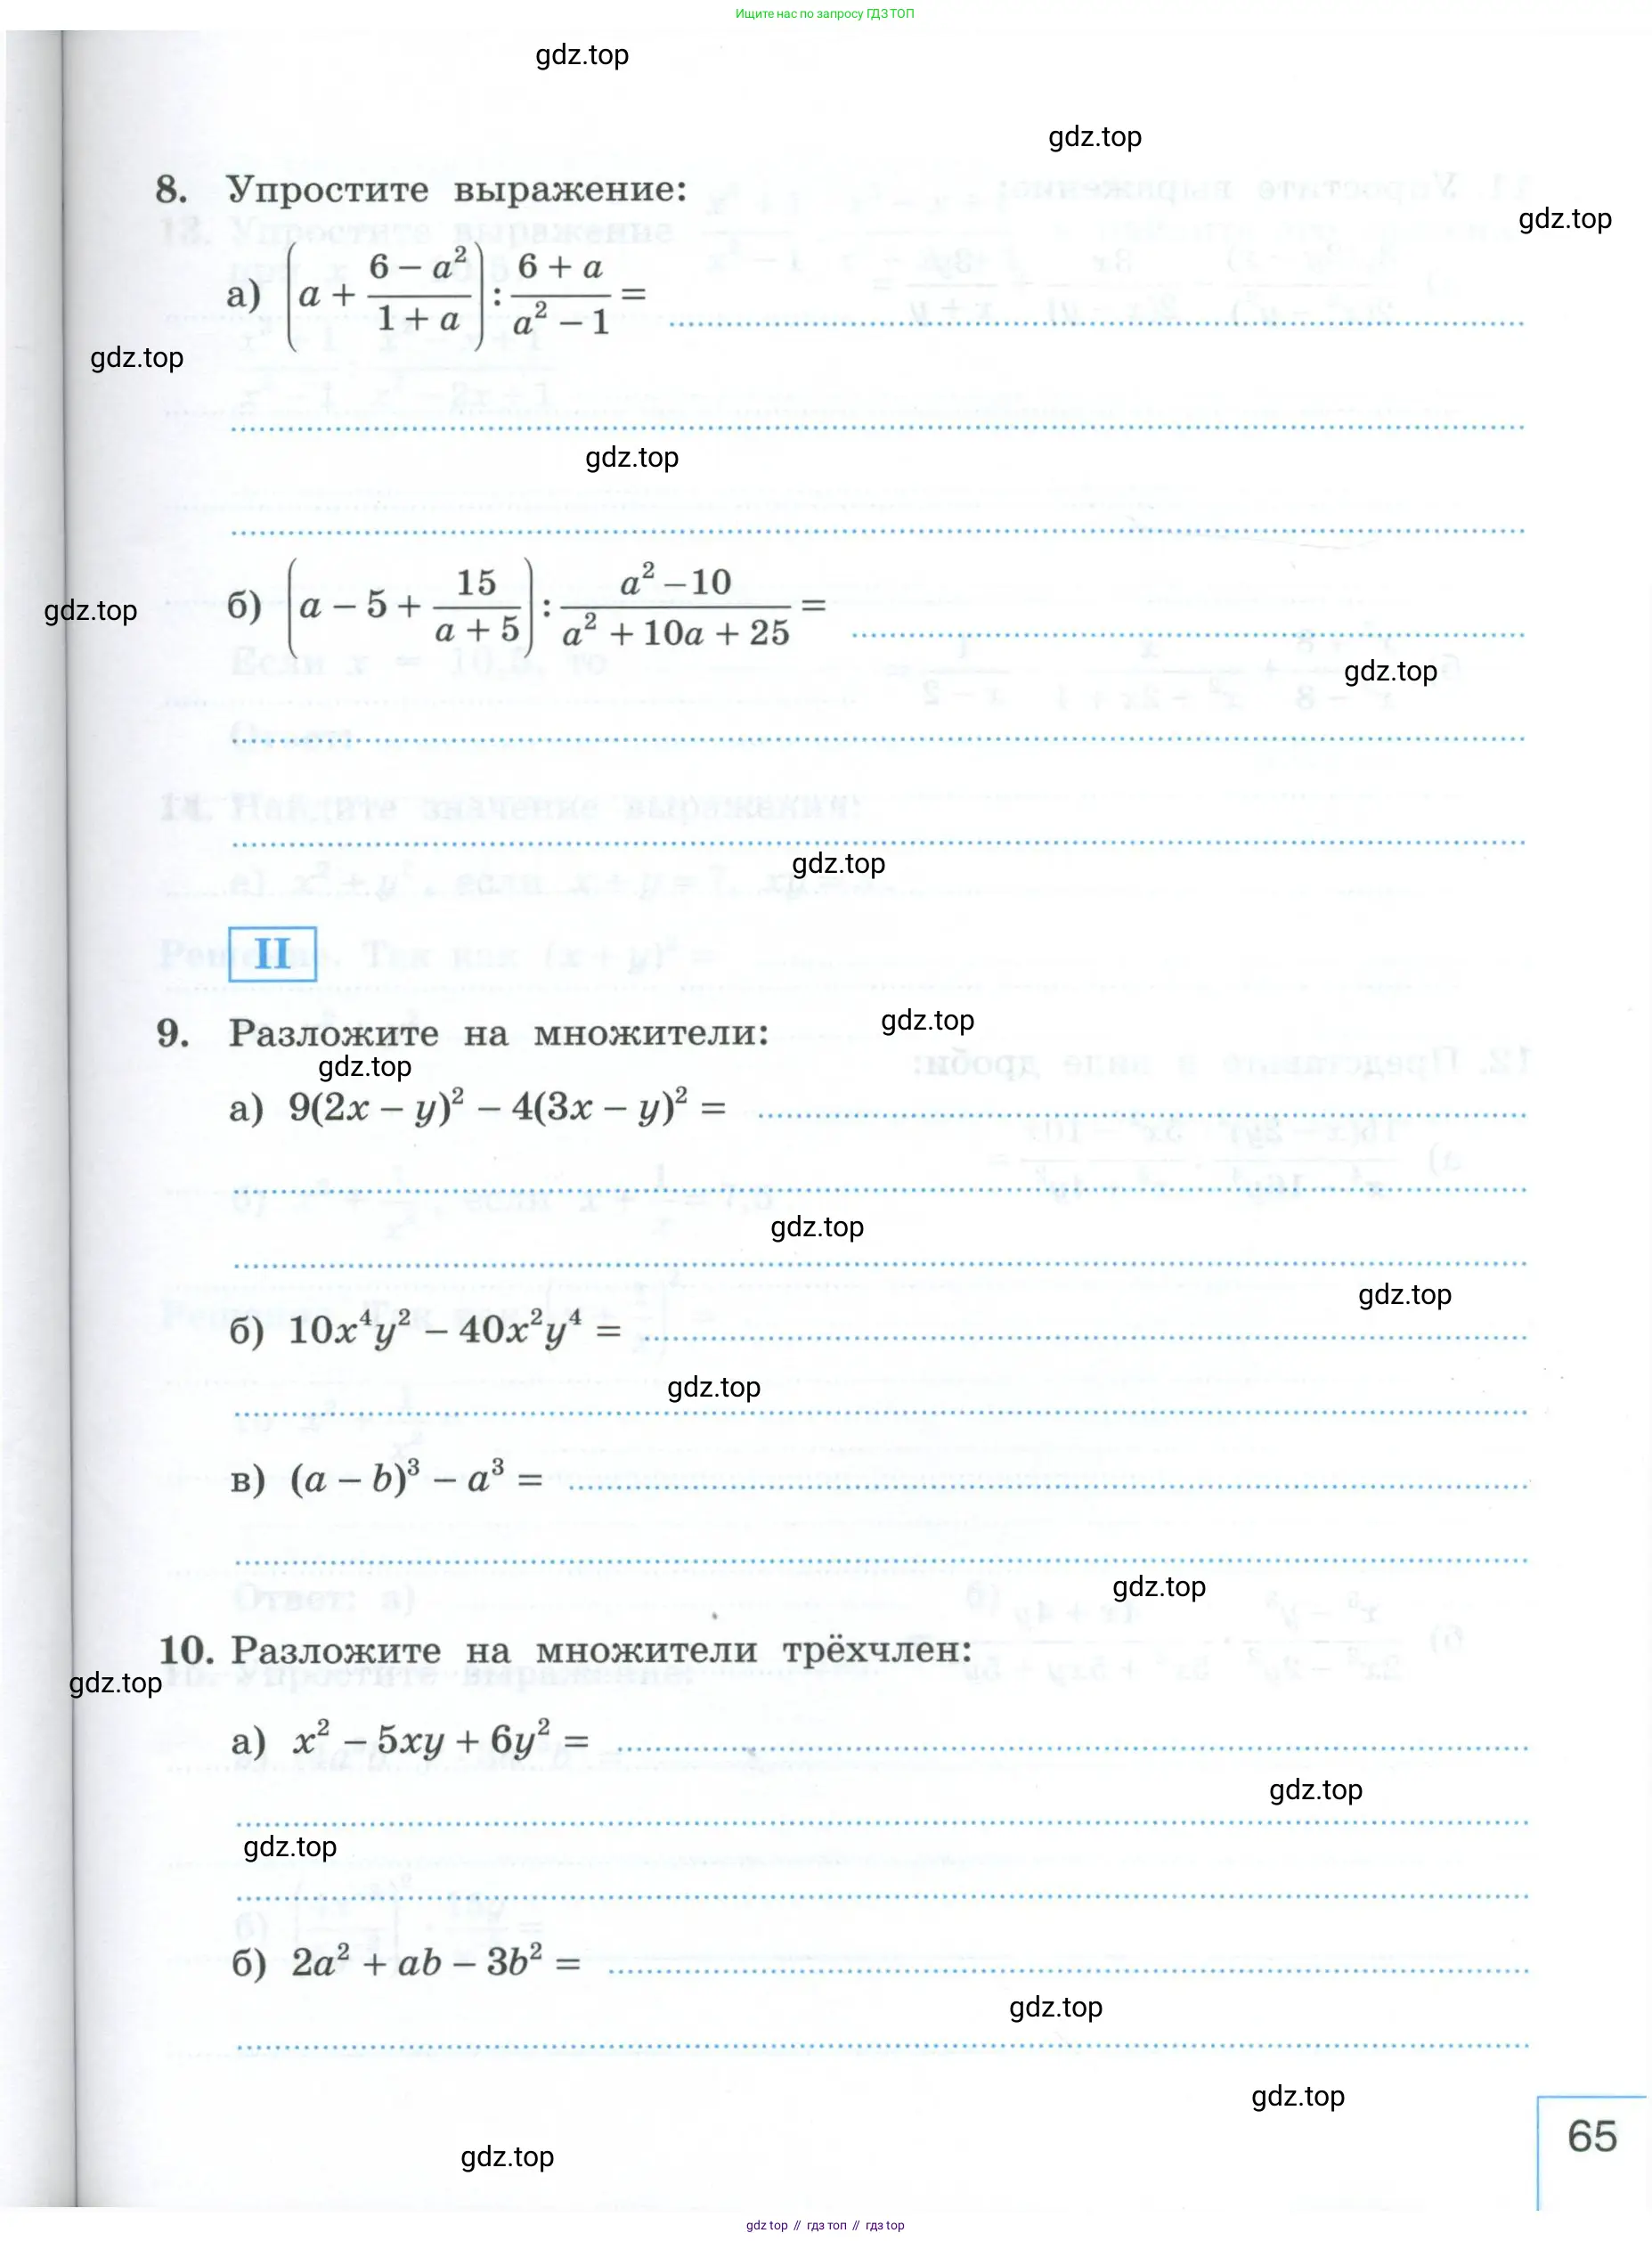 Ищите нас по запросу ГДЗ ТОП
gdz.top
gdz.top
8. Упростите выражение:
gdz.top
а) (a + (6 – a²)/(1 + a)) : (6 + a)/(a² – 1) =
gdz.top
gdz.top
б) (a – 5 + 15/(a + 5)) : (a² – 10)/(a² + 10a + 25) =
gdz.top
gdz.top
gdz.top
II
gdz.top
9. Разложите на множители:
gdz.top
а) 9(2x – y)² – 4(3x – y)² =
gdz.top
gdz.top
б) 10x⁴y² – 40x²y⁴ =
gdz.top
в) (a – b)³ – a³ =
gdz.top
10. Разложите на множители трёхчлен:
gdz.top
а) x² – 5xy + 6y² =
gdz.top
gdz.top
б) 2a² + ab – 3b² =
gdz.top
gdz.top
65
gdz.top
gdz top // гдз топ // гдз top